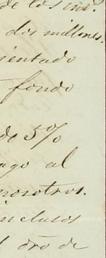 de los ind.
dos millones.
mentado
fondo
de 5%
ago al
nosotros.
inclusos
l oro de